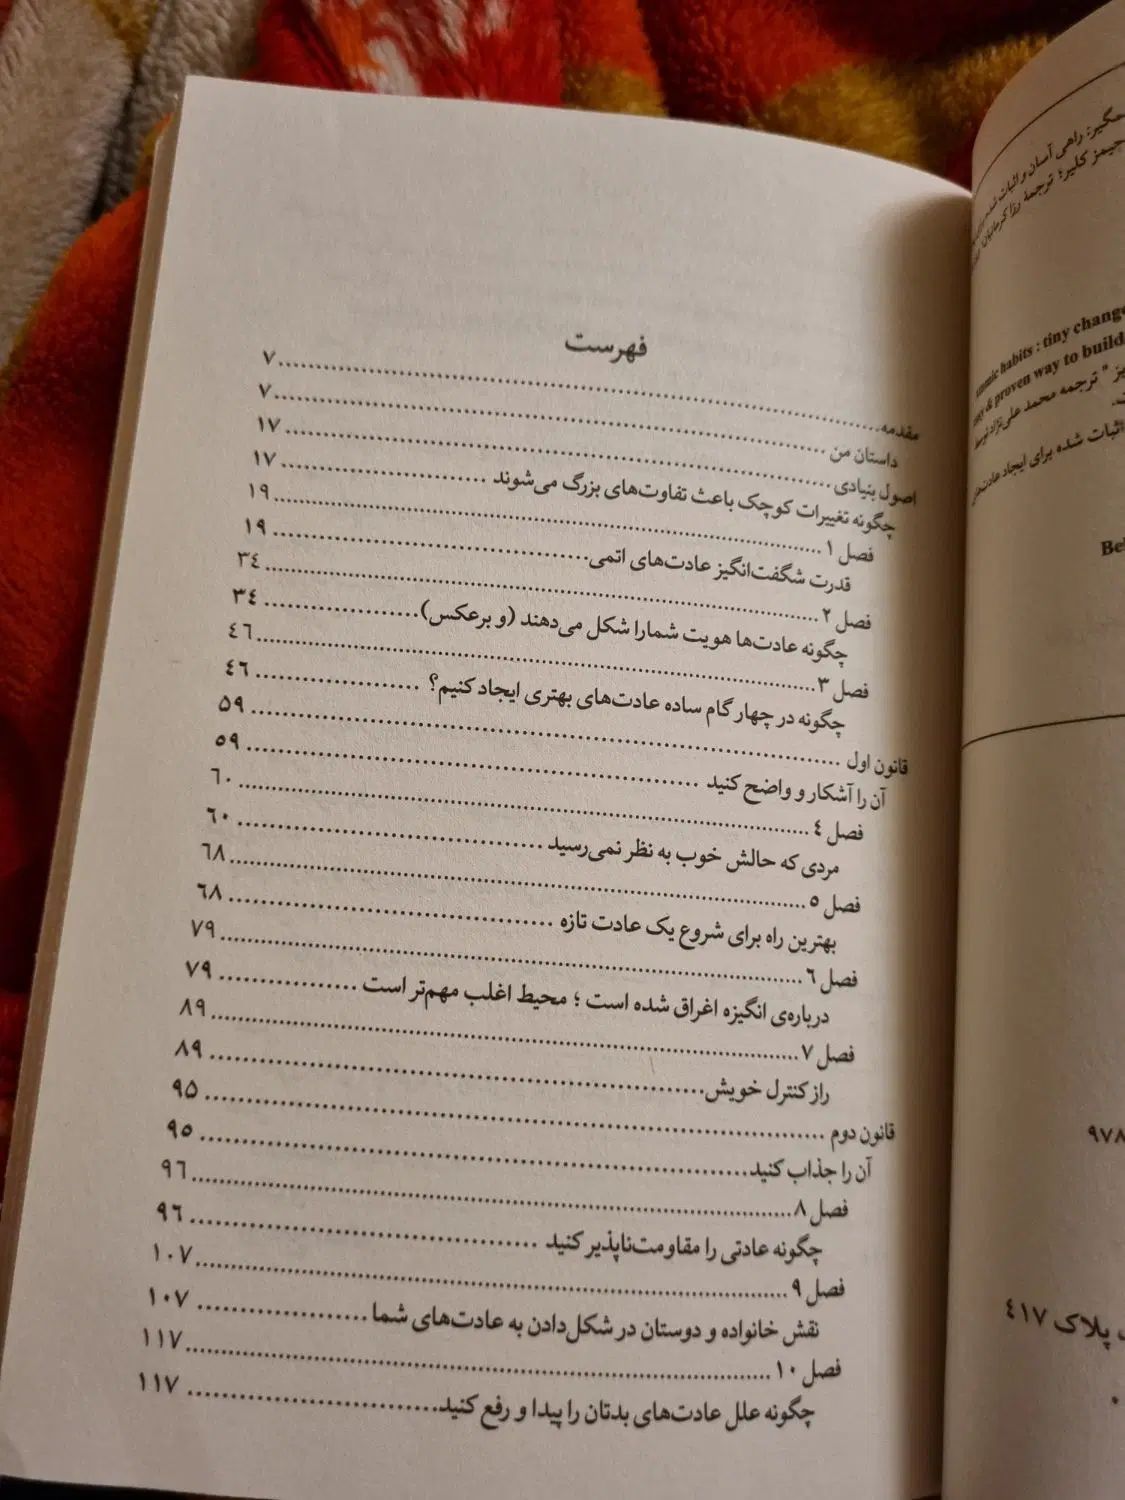 فهرست
مقدمه.......................................................................۷
داستان من .......................................................................۷
اصول بنیادی .......................................................................۱۷
چگونه تغییرات کوچک باعث تفاوت‌های بزرگ می‌شوند .........................۱۷
فصل ۱ .......................................................................۱۹
قدرت شگفت‌انگیز عادت‌های اتمی.......................................۱۹
فصل ۲ .......................................................................۳٤
چگونه عادت‌ها هویت شمارا شکل می‌دهند (و برعکس)....................۳٤
فصل ۳ .......................................................................٤٦
چگونه در چهار گام ساده عادت‌های بهتری ایجاد کنیم؟ ....................٤٦
قانون اول .......................................................................۵۹
آن را آشکار و واضح کنید .......................................................۵۹
فصل ٤ .......................................................................٦۰
مردی که حالش خوب به نظر نمی‌رسید .......................................٦۰
فصل ۵ .......................................................................٦۸
بهترین راه برای شروع یک عادت تازه .......................................٦۸
فصل ٦ .......................................................................۷۹
درباره‌ی انگیزه اغراق شده است ؛ محیط اغلب مهم‌تر است .................۷۹
فصل ۷ .......................................................................۸۹
راز کنترل خویش.......................................................۸۹
قانون دوم .......................................................................۹۵
آن را جذاب کنید.......................................................۹۵
فصل ۸ .......................................................................۹٦
چگونه عادتی را مقاومت‌ناپذیر کنید .......................................۹٦
فصل ۹ .......................................................................۱۰۷
نقش خانواده و دوستان در شکل‌دادن به عادت‌های شما ....................۱۰۷
فصل ۱۰ .......................................................................۱۱۷
چگونه علل عادت‌های بدتان را پیدا و رفع کنید..............................۱۱۷
راهی آسان و اثبات
جیمز کلیر؛ ترجمهٔ رزا کرمانیان
habits : tiny change
& proven way to build
" ترجمه محمد علی‌نژاد
اثبات شده برای ایجاد
Be
۹۷۸
پلاک ٤۱۷